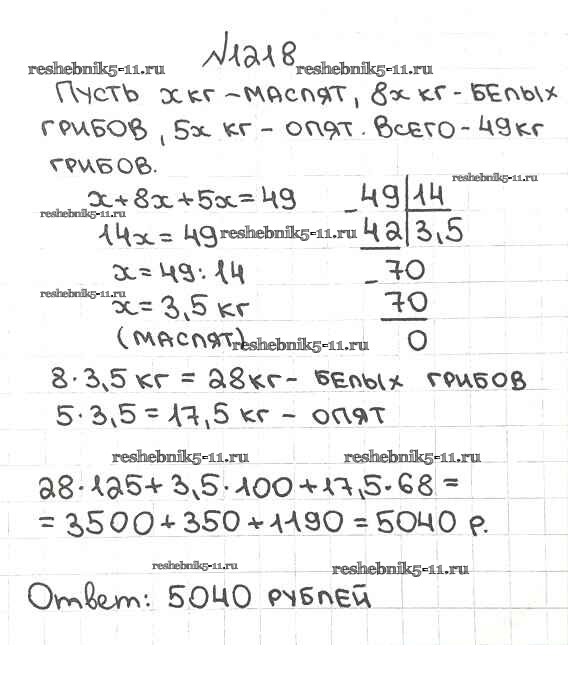 №1218
reshebnik5-11.ru reshebnik5-11.ru
Пусть x кг - маслят, 8x кг - белых
грибов, 5x кг - опят. Всего - 49 кг
грибов.
reshebnik5-11.ru
x + 8x + 5x = 49
reshebnik5-11.ru
14x = 49
reshebnik5-11.ru
x = 49 : 14
reshebnik5-11.ru
x = 3,5 кг
(маслят)
reshebnik5-11.ru
- 49 | 14
42 | 3,5
- 70
70
0
8 · 3,5 кг = 28 кг - белых грибов
5 · 3,5 = 17,5 кг - опят
reshebnik5-11.ru reshebnik5-11.ru
28 · 125 + 3,5 · 100 + 17,5 · 68 =
= 3500 + 350 + 1190 = 5040 р.
reshebnik5-11.ru reshebnik5-11.ru
Ответ: 5040 рублей